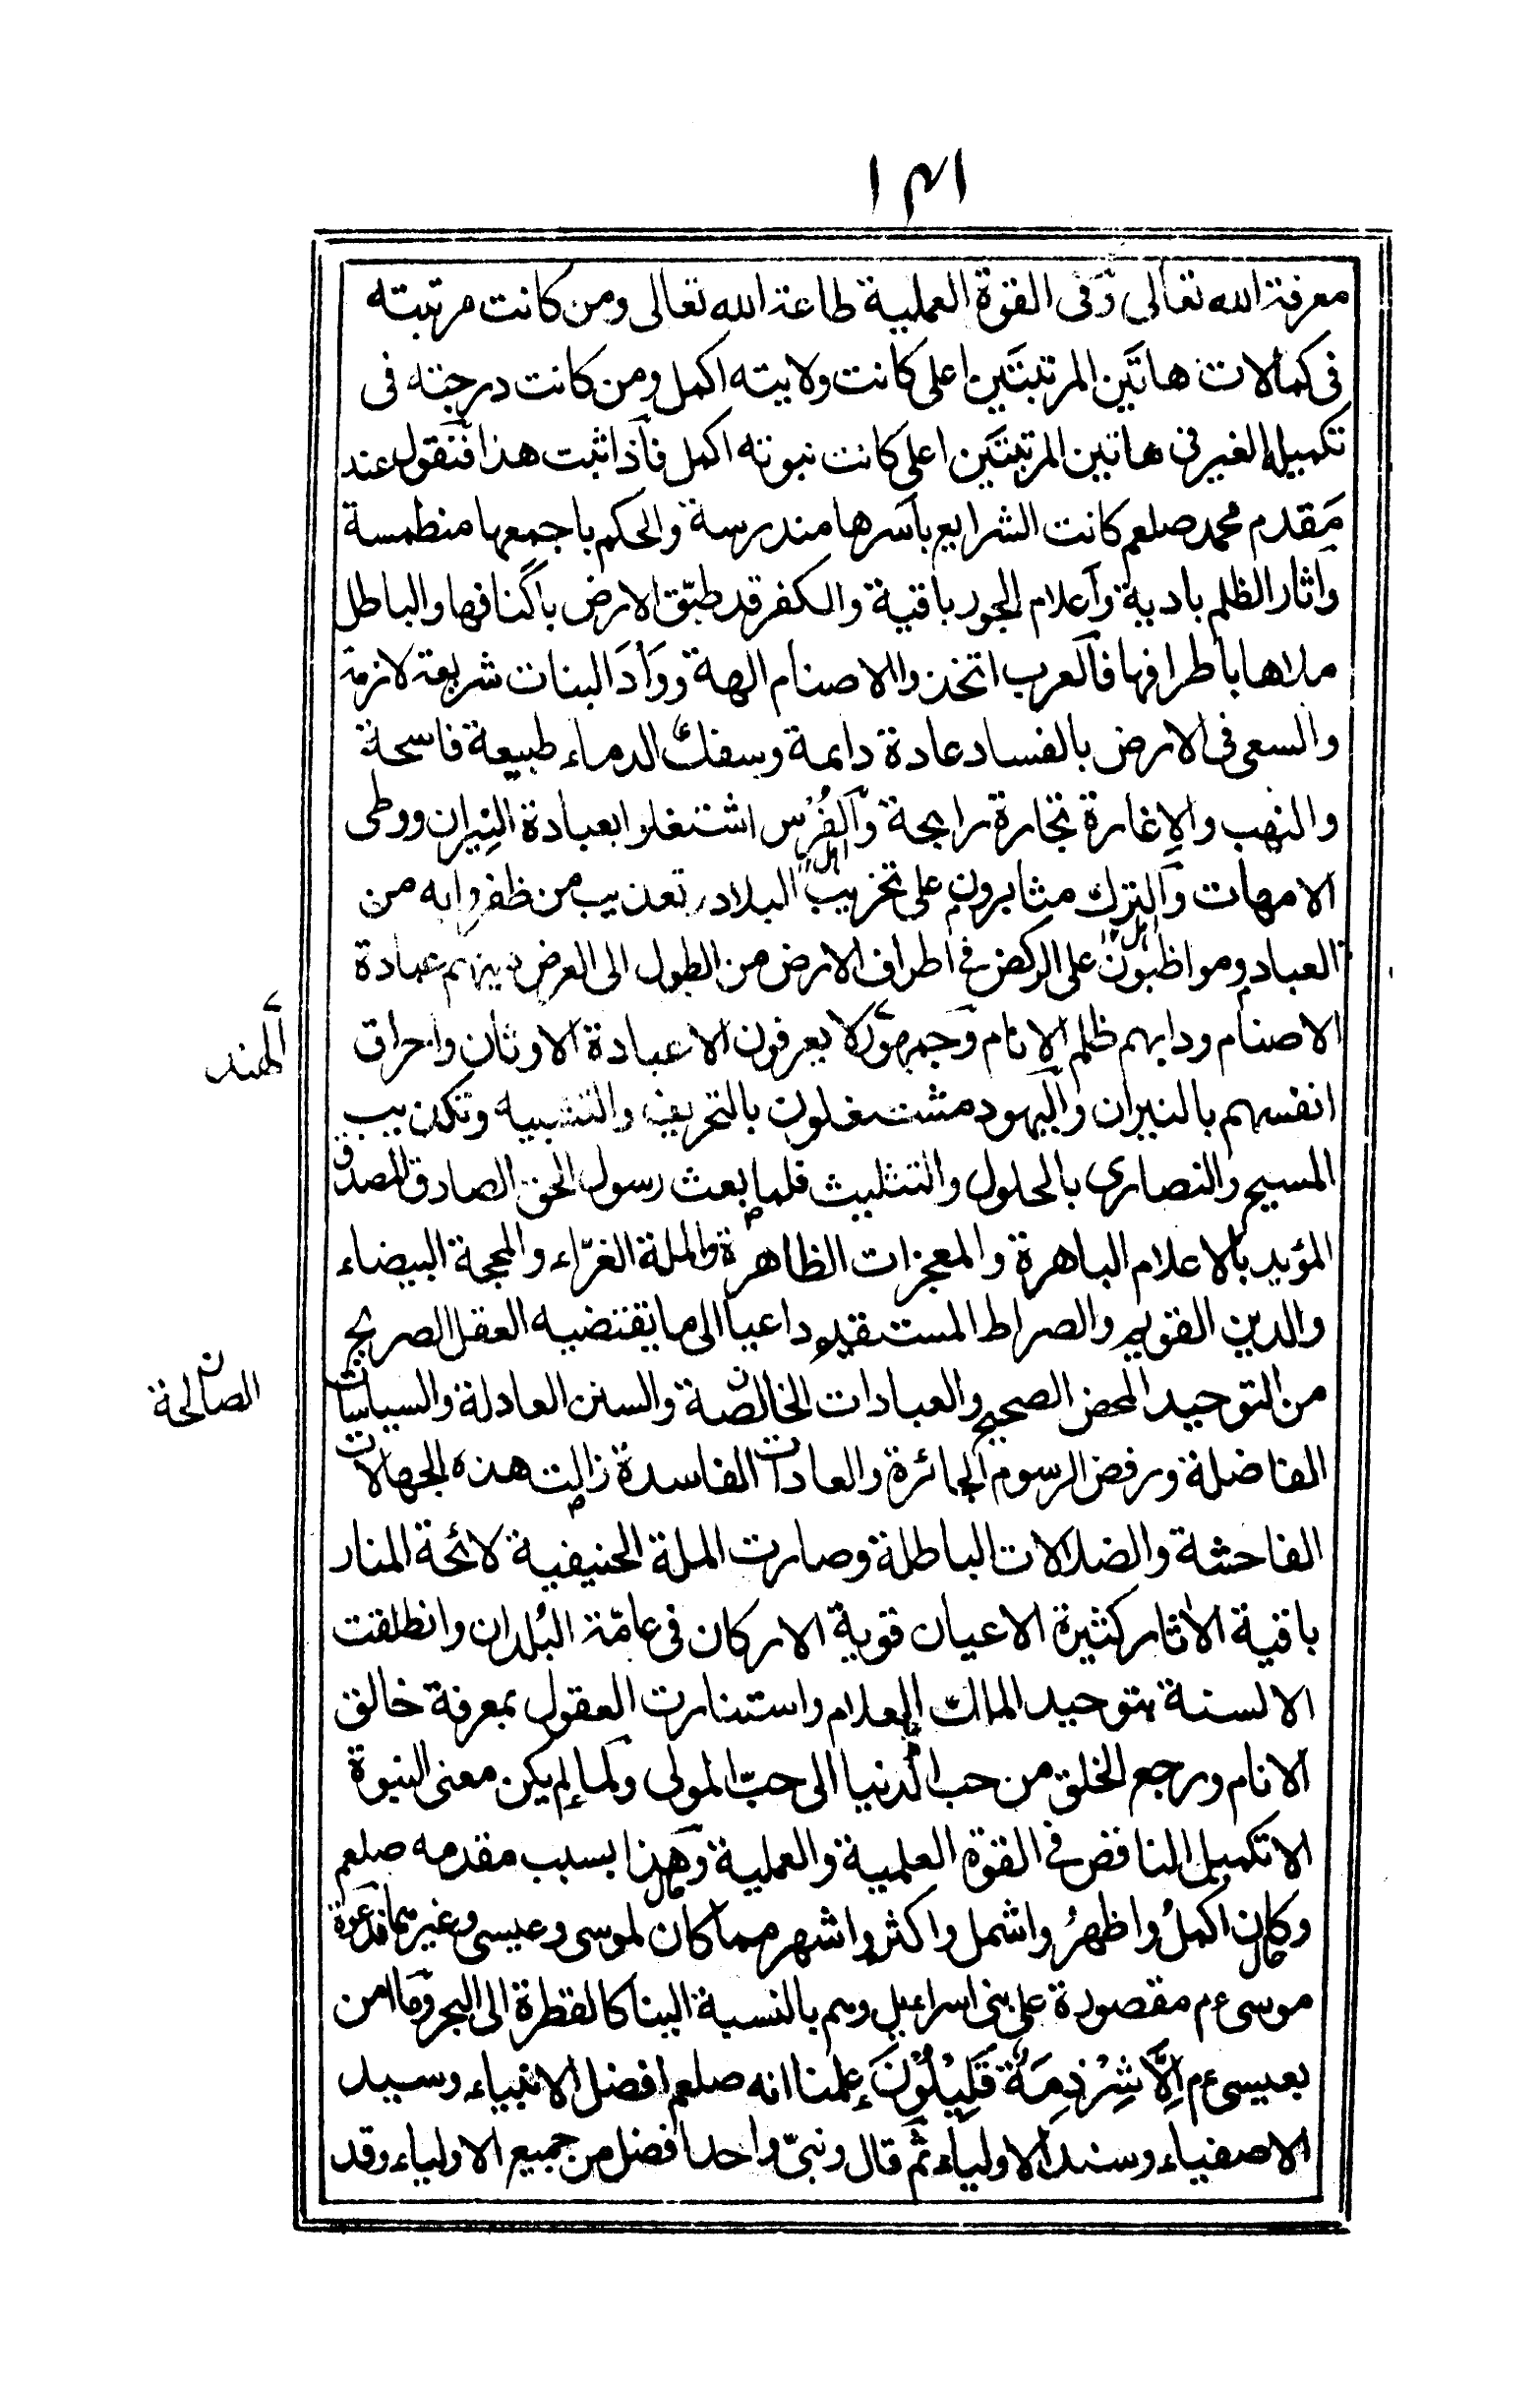 ١٣١
معرفة الله تعالى وفى القوة العملية طاعة الله تعالى ومن كانت مرتبته
فى كمالات هاتَين المرتبتَين اعلى كانت ولايته اكمل ومن كانت درجته فى
تكميل الغير فى هاتين المرتبتَين اعلى كانت نبوته اكمل فاذا ثبت هذا فنقول عند
مَقدم محمد صلعم كانت الشرايع باسرها مندرسة والحكم باجمعها منطمسة
واثار الظلم بادية واعلام الجور باقية والكفر قد طبّق الارض باكنافها والباطل
ملاها باطرافها فالعرب اتخذوا الاصنام الهة ووَأدَ البنات شريعة لازمة
والسعى فى الارض بالفساد عادة دايمة وسفك الدماء طبيعة فاسحة
والنهب والاِغارة تجارة رابحة والفُرْس اشتغلوا بعبادة النِيران ووطى
الامهات والترك مثابرون على تخريب البلاد وتعذيب من ظفروا به من
العباد ومواظبون على الركض فى اطراف الارض من الطول الى العرض دينهم عبادة
الاصنام ودابهم ظلم الانام وجمهور لا يعرفون الا عبادة الاوثان واحراق
الهند
انفسهم بالنيران واليهود مشتغلون بالتحريف والتشبيه وتكذيب
المسيح والنصارى بالحلول والتثليث فلما بعث رسول الحق الصادق المصدق
المؤيد بالاعلام الباهرة والمعجزات الظاهرة والملة الغرّاء والمحجة البيضاء
والدين القويم والصراط المستقيم داعيا الى ما يقتضيه العقل الصريح
من التوحيد المحض الصحيح والعبادات الخالصة والسنن العادلة والسياسات
الصالحة
الفاضلة ورفض الرسوم الجائرة والعادات الفاسدة زالت هذه الجهالات
الفاحشة والضلالات الباطلة وصارت الملة الحنيفية لائحة المنار
باقية الاثار كثيرة الاعيان قوية الاركان فى عامّة البُلدان وانطلقت
الالسنة بتوحيد المالك العلام واستنارت العقول بمعرفة خالق
الانام ورجع الخلق من حب الدنيا الى حبّ المولى ولما لم يكن معنى النبوة
الا تكميل الناقص فى القوة العلمية والعملية وهذا بسبب مقدمه صلعم
وكان اكملُ واظهرُ واشمل واكثر واشهر مما كان لموسى وعيسى وغيرهما فدعوة
موسى ءم مقصورة على بنى اسراعيل وهم بالنسبة الينا كالقطرة الى البحر وما امن
بعيسى ءم اِلَّا شِرْذِمَةٌ قَلِيْلُوْنَ علمنا انه صلعم افضل الانبياء وسيد
الاصفياء وسند الاولياء ثم قال ونبىّ واحد افضل من جميع الاولياء وقد